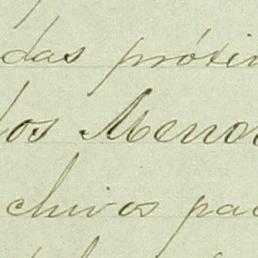 das próxi
dos Menor
chivos pa